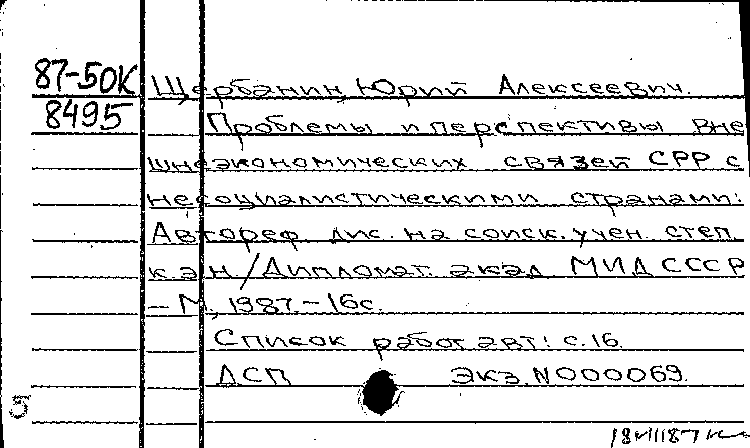 87-50К Щербанин, Юрий Алексеевич.
8495 Проблемы и перспективы вне
шнеэкономических связей СРР с
несоциалистическими странами:
Автореф. дис. на соиск. учен. степ.
к.э.н/Дипломат. акад. МИД СССР
– М., 1987. – 16с.
Список работ авт: с.16.
ДСП Экз. N000069.